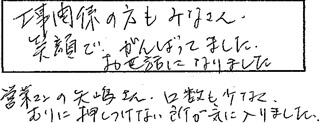 工事関係の方もみなさん、
笑顔で、がんばってました。
お世話になりました
営業マンの矢嶋さん、口数も少なく、
むりに押しつけない所が気に入りました。